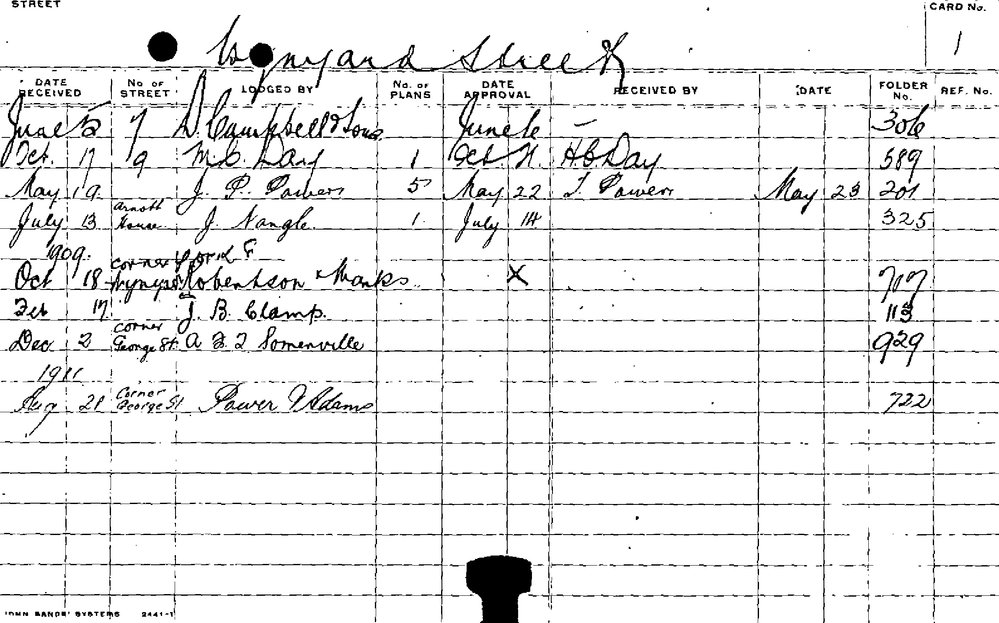 STREET
CARD No.
1
Wynyard Street
DATE RECEIVED No. OF STREET LODGED BY No. OF PLANS DATE APPROVAL RECEIVED BY DATE FOLDER No. REF. No.
June 5 7 D Campbell & Sons June 6 — 306
Oct. 17 9 M.C. Day 1 Oct H.C. Day 589
May 19 J. P. Powers 5 May 22 J. Powers May 23 201
July 13 Arnott House J. Nangle 1 July 14 325
1909.
Oct 18 corner York & Wynyard Robertson & Marks X 707
Feb 17 J. B. Clamp. 113
Dec 2 corner George St. A & J Somerville 929
1911
Aug 21 Corner George St Power & Adams 722
JOHN SANDS' SYSTEMS 2441-1